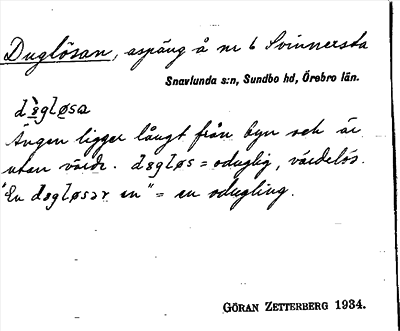 Duglösan, aspäng å nr 6 Svinnersta
Snavlunda s:n, Sundbo hd, Örebro län.
dɞ̀gløsa
Ängen ligger långt från byn och är
utan värde. dɞgløs = oduglig, värdelös.
"En dɞgløsər en" = en odugling.
GÖRAN ZETTERBERG 1934.